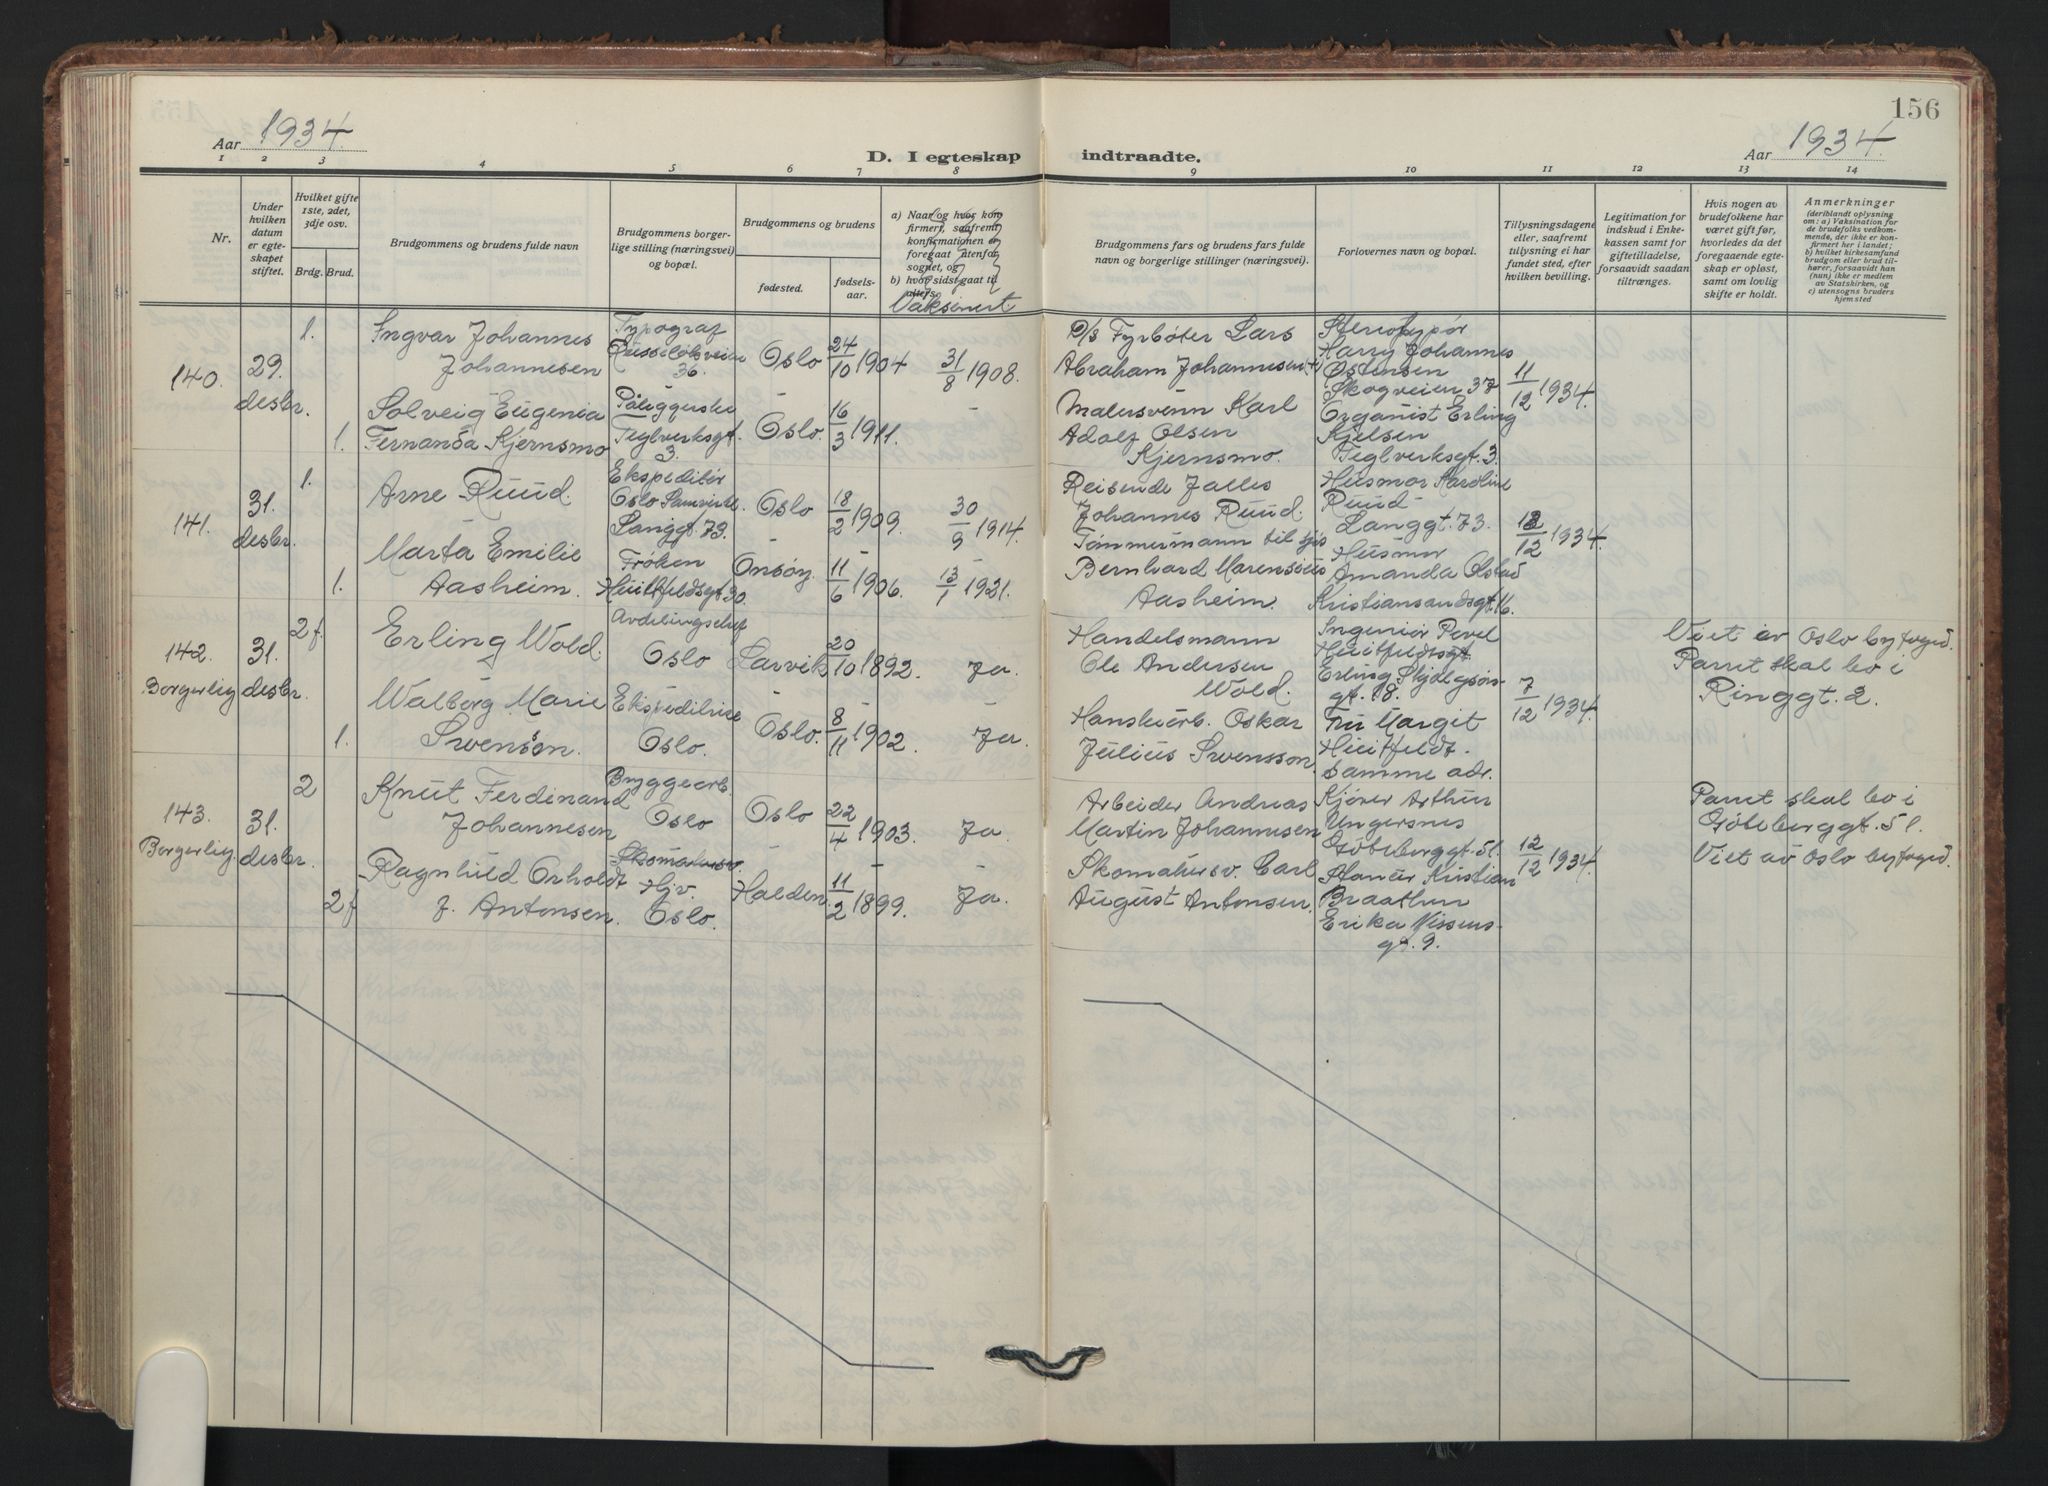 156
Aar 1934.
D. I egteskap indtraadte.
Aar 1934.
1 2 3 4 5 6 7 8 9 10 11 12 13 14
Nr.
Under hvilken datum er egteskapet stiftet.
Hvilket gifte 1ste, 2det, 3dje osv.
Brdg. Brud.
Brudgommens og brudens fulde navn
Brudgommens borgerlige stilling (næringsvei) og bopæl.
Brudgommens og brudens
fødested.
fødselsaar.
a) Naar og hvor konfirmert, saafremt konfirmationen er foregaat utenfor sognet, og
b) hvor sidst gaat til alters.
Vaksinert
Brudgommens fars og brudens fars fulde navn og borgerlige stillinger (næringsvei).
Forlovernes navn og bopæl.
Tillysningsdagene eller, saafremt tillysning ei har fundet sted, efter hvilken bevilling.
Legitimation for indskud i Enkekassen samt for giftetilladelse, forsaavidt saadan tiltrænges.
Hvis nogen av brudefolkene har været gift før, hvorledes da det foregaaende egteskap er opløst, samt om lovlig skifte er holdt.
Anmerkninger
(deriblandt oplysning om: a) Vaksination for de brudefolks vedkommende, der ikke er konfirmert her i landet; b) hvilket kirkesamfund brudgom eller brud tilhører, forsaavidt han (hun) ikke er medlem av Statskirken, og c) utensogns bruders hjemsted
140.
29. desbr.
1.
Ingvar Johannes
Johannesen
Typograf
36.
Oslo
24/10 1904
31/8 1908.
D/s Fyrbøter Lars
Abraham Johannesen
Harry Johannes
Østensen
Skogveien 37
11/12 1934.
1.
Solveig Eugenia
Fernanda Kjernsmo
Påleggerske
Teglverksgt.
3.
Oslo.
16/3 1911.
-
Malersvenn Karl
Adolf Olsen
Kjernsmo.
Organist Erling
Kjelsen
Teglverksgt. 3.
141.
31. desbr.
1.
Arne Ruud.
Ekspeditør
Langgt. 73.
Oslo
18/2 1909.
30/9 1914.
Reisende
Johannes Ruud.
Husmor Karoline
Ruud
Langgt. 73.
12/12 1934.
1.
Marta Emilie
Aasheim.
Frøken
Huitfeldsgt. 30
Onsøy.
11/6 1906.
13/1 1921.
Tømmermann til sjøs
Bernhard
Aasheim.
Husmor
Amanda Olstad
Kristiansandsgt. 16.
142.
Borgerlig
31. desbr.
2 f.
Erling Wold.
Avdelingschef
Oslo
Larvik
20/10 1892.
Ja.
Handelsmann
Ole Andersen
Wold.
Ingeniør Povel
Huitfeldt
Erling Skjalgsøns-
gt. 18.
7/12 1934.
Viet av Oslo byfoged.
Parret skal bo i
Ringgt. 2.
1.
Walborg Marie
Swenson.
Ekspeditrise
Oslo.
Oslo.
8/11 1902.
Ja.
Hanskearb. Oskar
Julius Swensson
Fru Margit
Huitfeldt.
samme adr.
143.
Borgerlig.
31. desbr.
2
Knut Ferdinand
Johannesen
Bryggearb.
Oslo
Oslo
22/4 1903.
Ja.
Arbeider Andreas
Martin Johannesen
Kjører Arthur
Ungersnes
Gøteborggt. 51.
12/12 1934.
Parret skal bo i
Gøteborggt. 51.
Viet av Oslo byfoged.
2 f
Ragnhild Orholdt
f. Antonsen.
Hjv.
Oslo.
Halden.
11/2 1899.
Ja.
Skomakersv. Carl
August Antonsen.
Kristian
Braathen
Erika Nissens-
gt. 9.